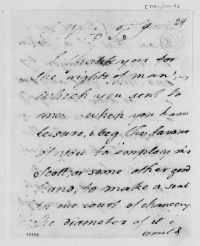 I thank you for
the "rights of man",
which you sent to
me. when you have
leisure, I beg the favour
of you to employ mr
Scott, or some other good
hand, to make a seal
for our court of chancery
the diameter of it